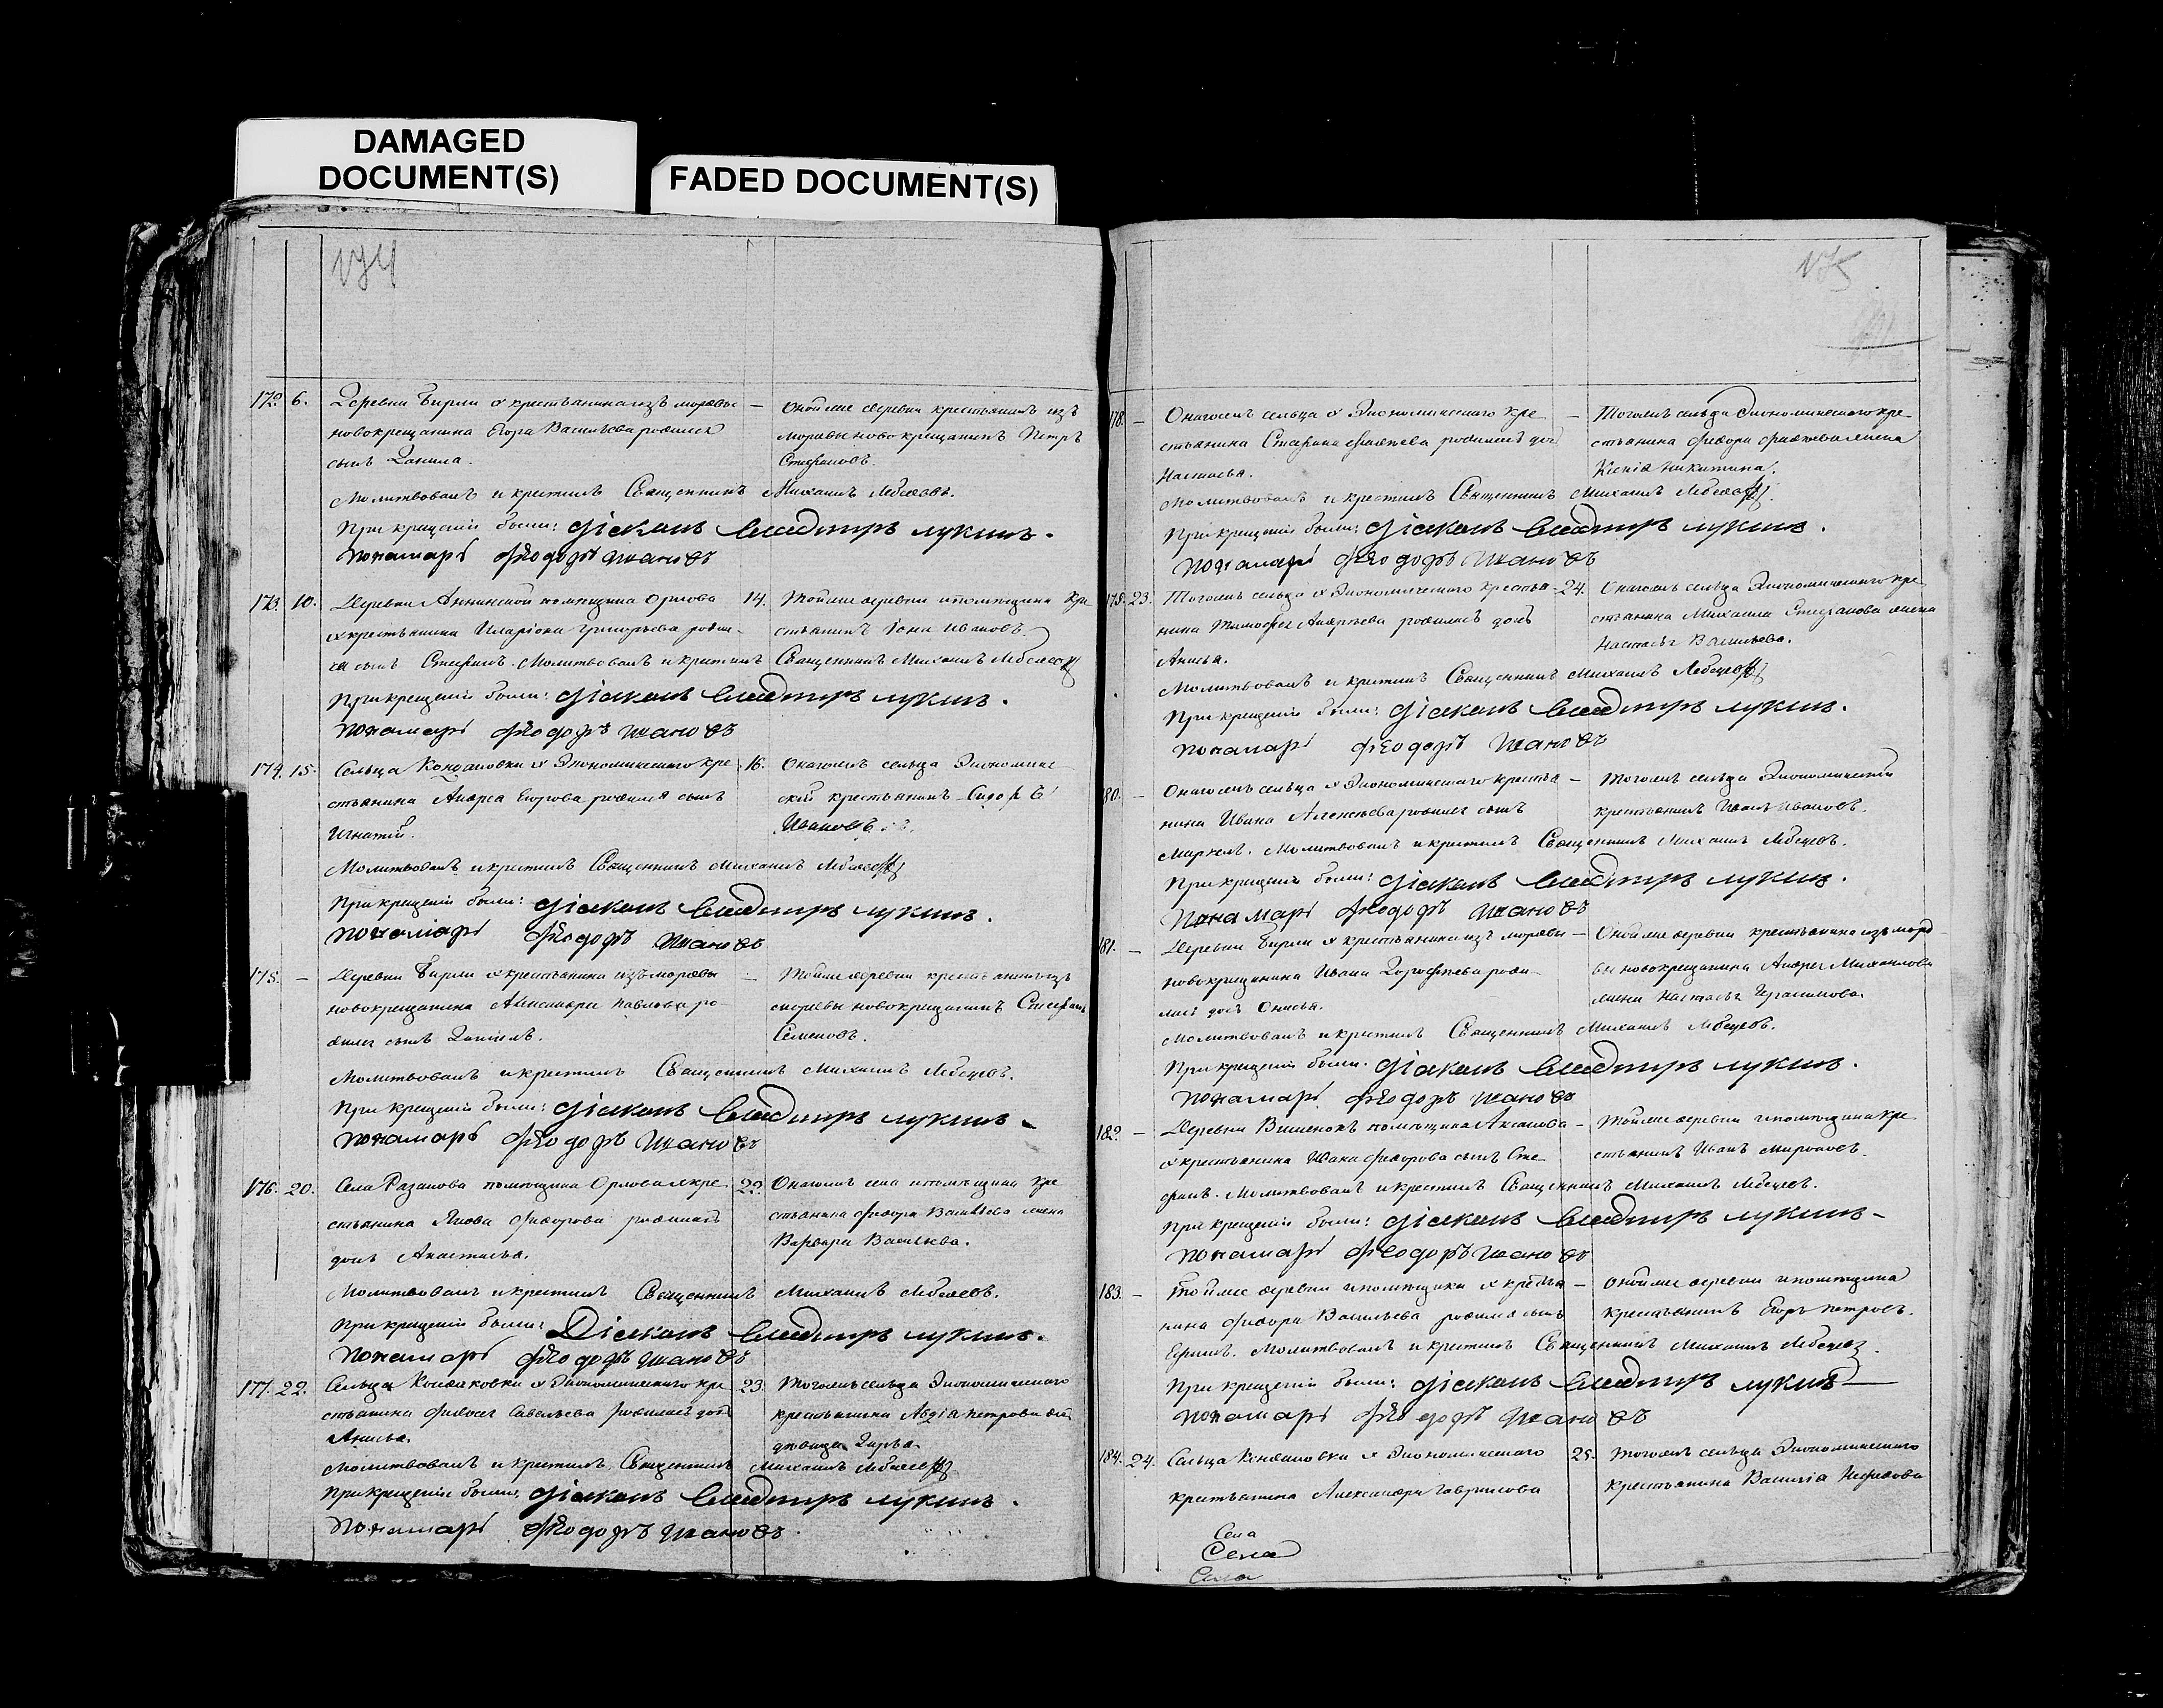 DAMAGED
DOCUMENT(S)
FADED DOCUMENT(S)
174
172. 6. Деревни Бирли у крестьянина изъ мордвы —
новокрещанина Егора Васильева родился
сынъ Данила.
Оной же деревни крестьянинъ изъ
мордвы новокрещанинъ Петръ
Стефановъ.
Молитвовалъ и крестилъ Священникъ Михаилъ Лебедевъ.
При крещеніи были: Діаконъ Владимиръ Лукинъ.
Пономарь Ѳеодоръ Ивановъ
173. 10. Деревни Аннинской помещика Орлова 14.
у крестьянина Иларіона Григорьева роди-
ся сынъ Стефанъ. Молитвовалъ и крестилъ Священникъ Михаилъ Лебедевъ
Той же деревни и помещика кре
стьянинъ Іона Ивановъ.
При крещеніи были: Діаконъ Владимиръ Лукинъ.
Пономарь Ѳеодоръ Ивановъ
174. 15. Сельца Кондаковки у Экономическаго кре 16.
стьянина Андрея Егорова родился сынъ
Игнатій.
Онагожъ сельца Экономиче
скій крестьянинъ Сидоръ
Ивановъ.
Молитвовалъ и крестилъ Священникъ Михаилъ Лебедевъ
При крещеніи были: Діаконъ Владимиръ Лукинъ.
Пономарь Ѳеодоръ Ивановъ
175. — Деревни Бирли у крестьянина изъ мордвы —
новокрещанина Александра Павлова ро
дился сынъ Даніилъ.
Той же деревни крестьянинъ изъ
мордвы новокрещанинъ Стефанъ
Семеновъ.
Молитвовалъ и крестилъ Священникъ Михаилъ Лебедевъ.
При крещеніи были: Діаконъ Владимиръ Лукинъ.
Пономарь Ѳеодоръ Ивановъ
176. 20. Села Разанова помещика Орлова у кре 22.
стьянина Якова Федорова родилась
дочь Анастасья.
Онагожъ села и помещика кре
стьянина Федора Васильева жена
Варвара Васильева.
Молитвовалъ и крестилъ Священникъ Михаилъ Лебедевъ.
При крещеніи были: Діаконъ Владимиръ Лукинъ.
Пономарь Ѳеодоръ Ивановъ
177. 22. Сельца Кондаковки у Экономическаго кре 23.
стьянина Савельева родилась дочь
Анисья.
Тогожъ сельца Экономическаго
крестьянина Авдія Петрова
Дарья.
Молитвовалъ и крестилъ Священникъ Михаилъ Лебедевъ
При крещеніи были: Діаконъ Владимиръ Лукинъ.
Пономарь Ѳеодоръ Ивановъ.
175
178. — Онагожъ сельца у Экономическаго кре —
стьянина Стефана родилась дочь
Настасья.
Тогожъ сельца Экономическаго кре
стьянина Федора жена
Ксенія Никитина.
Молитвовалъ и крестилъ Священникъ Михаилъ Лебедевъ.
При крещеніи были: Діаконъ Владимиръ Лукинъ.
Пономарь Ѳеодоръ Ивановъ
179. 23. Тогожъ сельца у Экономическаго крестья 24.
нина Тимофея Андреева родилась дочь
Анисья.
Онагожъ сельца Экономическаго кре
стьянина Михаила Стефанова жена
Настасья Васильева.
Молитвовалъ и крестилъ Священникъ Михаилъ Лебедевъ
При крещеніи были: Діаконъ Владимиръ Лукинъ.
Пономарь Ѳеодоръ Ивановъ
180. — Онагожъ сельца у Экономическаго крестья —
нина Ивана Алексеева родился сынъ
Маркелъ. Молитвовалъ и крестилъ Священникъ Михаилъ Лебедевъ.
Тогожъ сельца Экономическій
крестьянинъ Иванъ Ивановъ.
При крещеніи были: Діаконъ Владимиръ Лукинъ.
Пономарь Ѳеодоръ Ивановъ
181. — Деревни Бирли у крестьянина изъ мордвы —
новокрещанина Ивана Дорофеева роди-
лась дочь Онисья.
Оной же деревни крестьянина изъ морд
вы новокрещанина Андрея Михайлова
жена Настасья Герасимова
Молитвовалъ и крестилъ Священникъ Михаилъ Лебедевъ.
При крещеніи были: Діаконъ Владимиръ Лукинъ.
Пономарь Ѳеодоръ Ивановъ
182. — Деревни Вишенокъ помещика Аксакова —
у крестьянина Ивана Федорова сынъ Сте
фанъ. Молитвовалъ и крестилъ Священникъ Михаилъ Лебедевъ.
Той же деревни и помещика кре
стьянинъ Иванъ Мироновъ.
При крещеніи были: Діаконъ Владимиръ Лукинъ
Пономарь Ѳеодоръ Ивановъ
183. — Той же деревни и помещика у крестья —
нина Федора Васильева родился сынъ
Ефимъ. Молитвовалъ и крестилъ Священникъ Михаилъ Лебедевъ.
Оной же деревни и помещика
крестьянинъ Егоръ Петровъ.
При крещеніи были: Діаконъ Владимиръ Лукинъ
Пономарь Ѳеодоръ Ивановъ
184. 24. Сельца Кондаковки у Экономическаго 25.
крестьянина Александра Гаврилова
Тогожъ сельца Экономическаго
крестьянина Василія Нефедова
Села
Села
Села